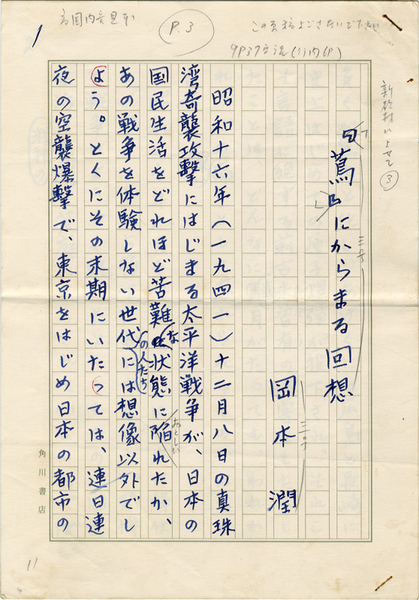 1
P.3
『蔦』にからまる回想
岡本潤
昭和十六年(一九四一)十二月八日の真珠
湾奇襲攻撃にはじまる太平洋戦争が、日本の
国民生活をどれほど苦難な状態に陥れたか、
あの戦争を体験しない世代の人たちには想像以外でし
よう。とくにその末期にいたっては、連日連
夜の空襲爆撃で、東京をはじめ日本の都市の
角川書店